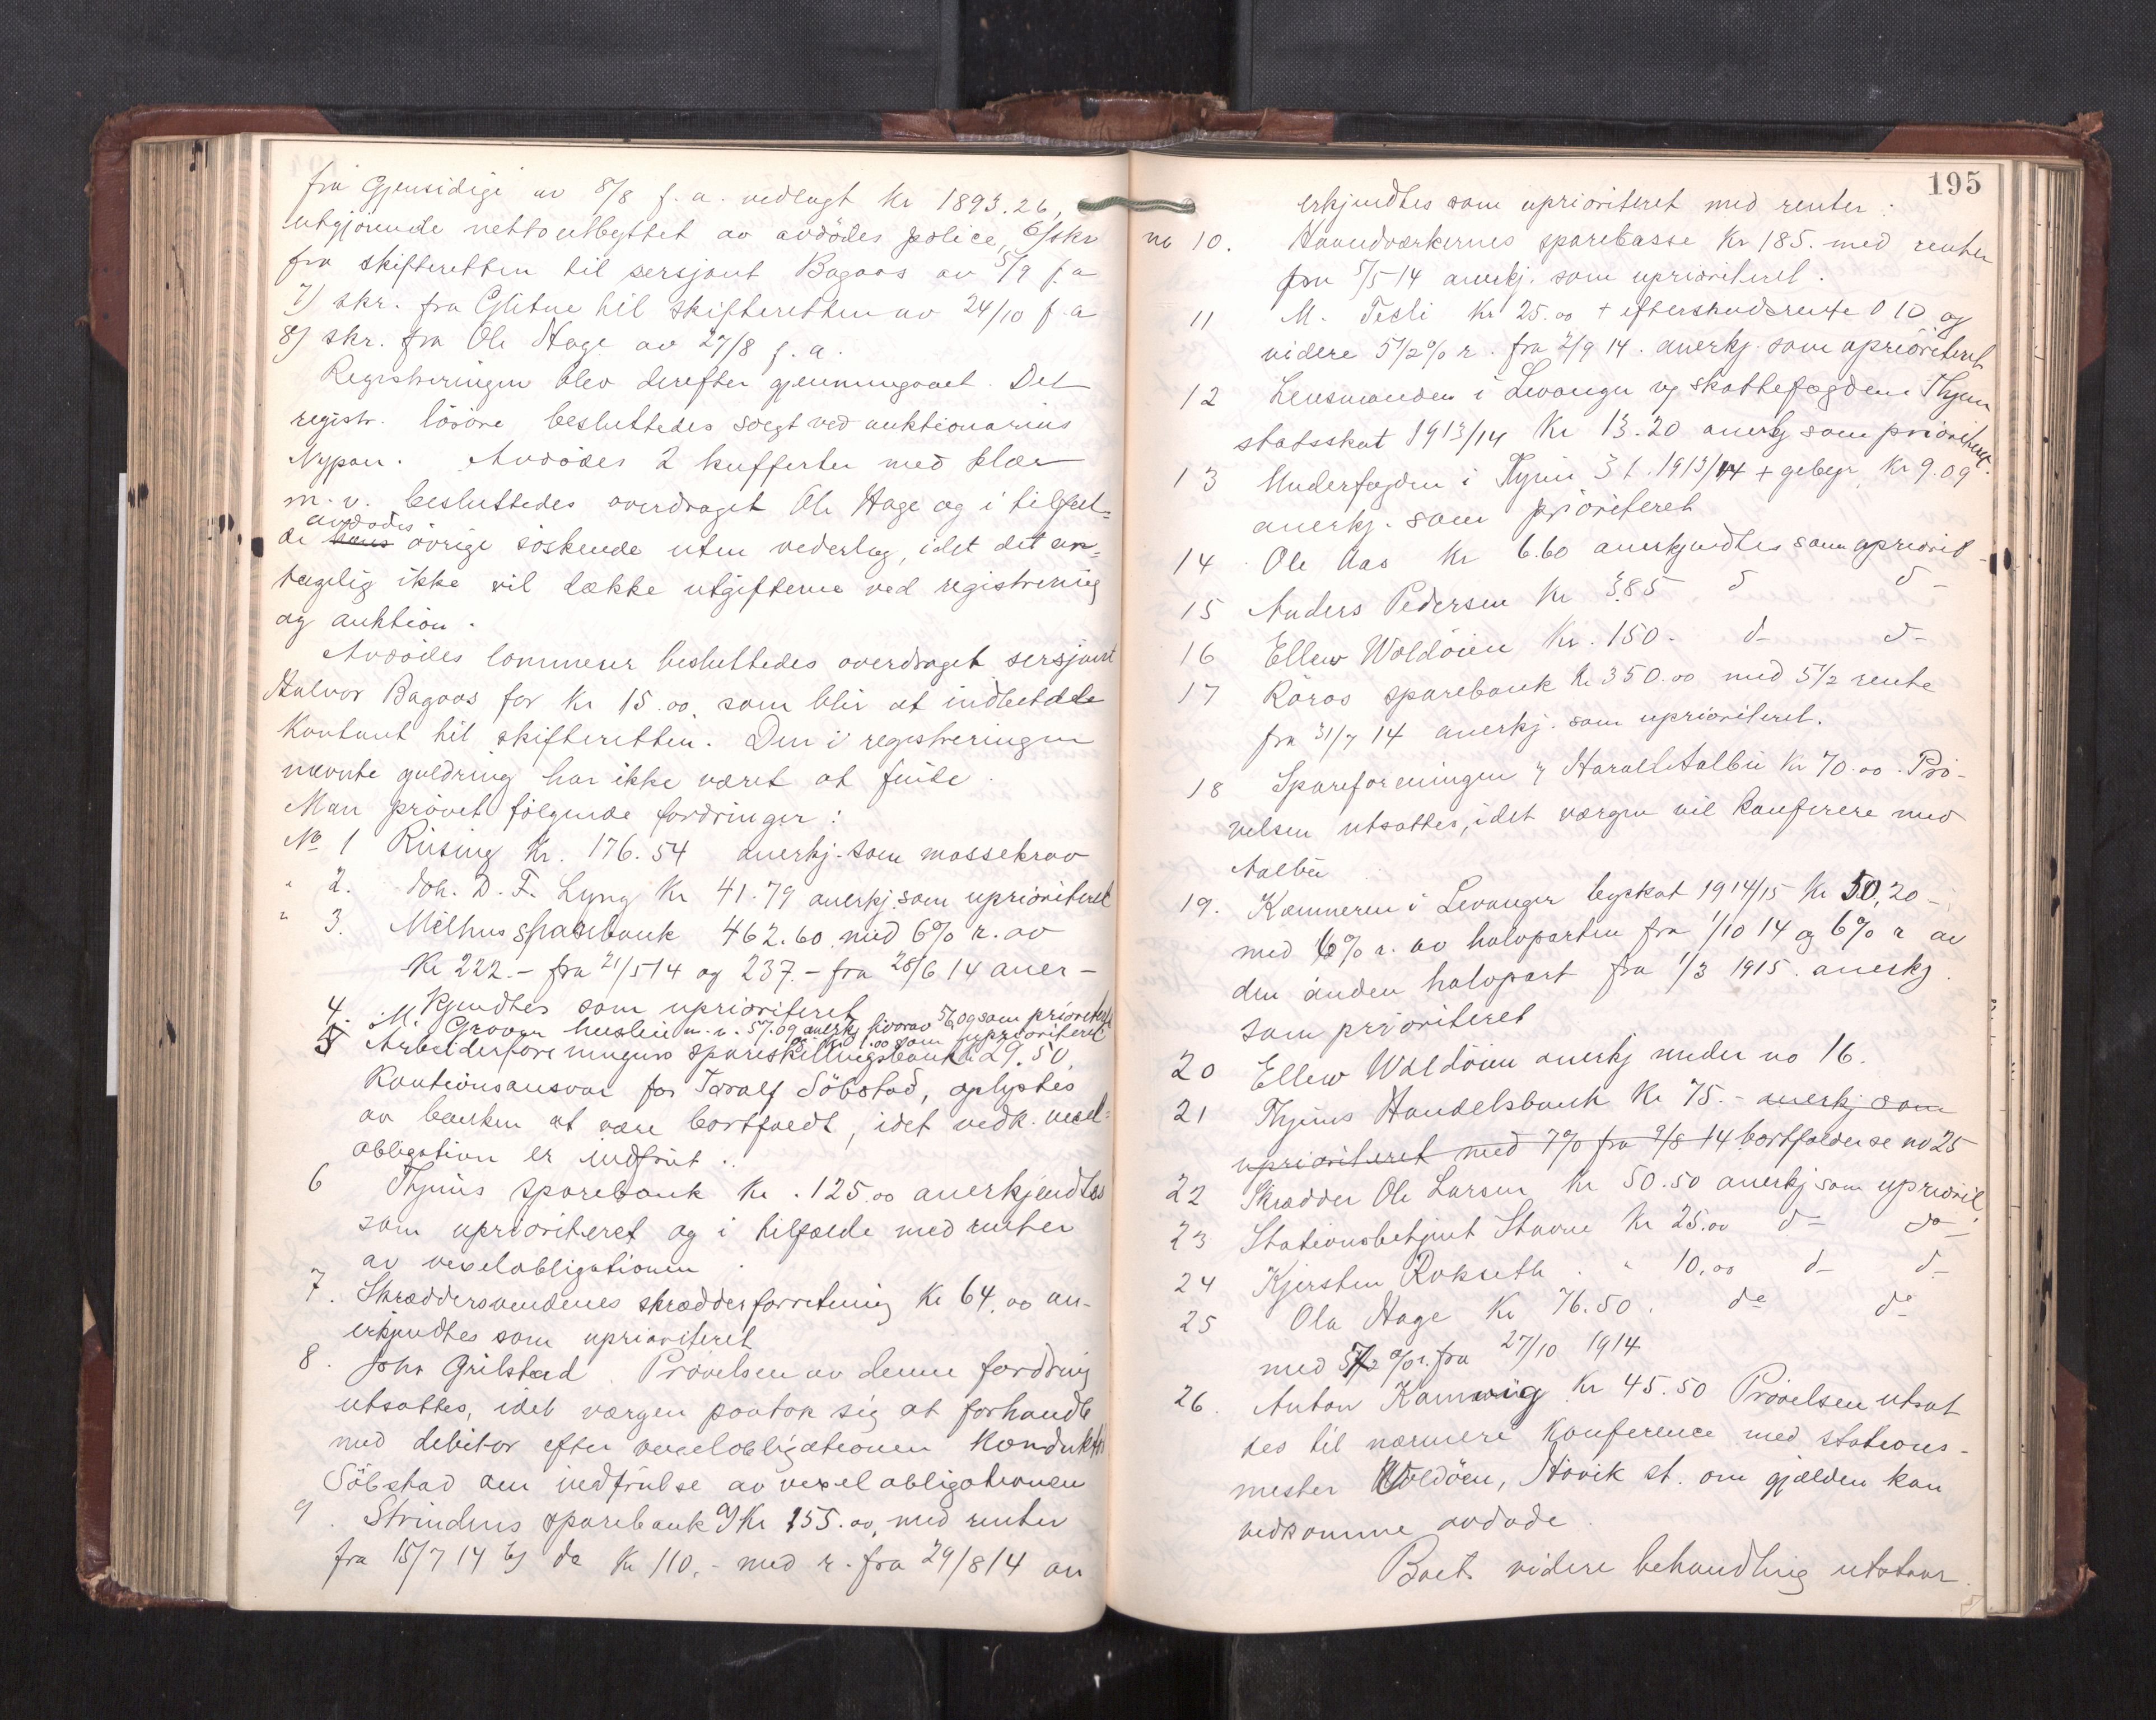 fra Gjensidige av 8/8 f.a. vedlagt Kr 1893.26,
utgjörende nettoutbyttet av avdödes police, 6/ skr
fra skifteretten til sersjant Bagaas av 5/9 f.a
7) skr. fra Glitne til skifteretten av 24/10 f.a
8) skr. fra Ole Hage av 27/8 f.a.
Registreringen blev derefter gjennemgaaet. Det
registr. lösöre besluttedes solgt ved auktionarius
Nypan. Avdödes 2 kufferter med klær
m.v. besluttedes overdraget Ole Hage og i tilfæl-
avdödes
de hans övrige söskende uten vederlag, idet det an-
tagelig ikke vil dække utgifterne ved registrering
og auktion.
Avdödes lommeur besluttedes overdraget sersjant
Halvor Bagaas for Kr 15.00 som blir at indbetale
Kontant til skifteretten. Den i registreringen
nævnte guldring har ikke været at finde.
Man prövet fölgende fordringer:
No 1 Riising Kr. 176.54 anerkj. som massekrav
" 2. Joh. D. F. Lyng Kr 41.79 anerkj. som uprioriteret
" 3. Melhus sparebank 462.60 med 6% r. av
Kr 222.- fra 21/5 14 og 237.- fra 28/6 14 aner-
kjendtes som uprioriteret
4. M. Grovan husleie m.v. 57.09 anerkj hvorav 56,09 som prioriteret
og Kr 1.00 som uprioriteret
5 Arbeiderforeningens spareskillingsbank Kr 29.50,
Kautionsansvar for Toralf Söbstad, oplystes
av banken at være bortfaldt, idet vedk. vexel-
obligation er indfriet.
6 Thyuns sparebank Kr. 125.00 anerkjendtes
som uprioriteret og i tilfælde med renter
av vexelobligationen.
7. Skræddersvendenes skrædderforretning Kr 64.00 an-
erkjendtes som uprioriteret
8. John Grilstad. Prövelsen av denne fordring
utsattes, idet værgen paatok sig at forhandle
med debitor efter vexelobligationen Konduktör
Söbstad om indfrielse av vexelobligationen
9. Strindens sparebank a) Kr 155.00, med renter
fra 15/7 14 b) do Kr 110.- med r. fra 29/8 14 an
195
erkjendtes som uprioriteret med renter.
no 10. Haandværkernes sparekasse Kr 185. med renter
fra 5/5 14 anerkj. som uprioriteret.
11 M. Tesli Kr 25.00 + efterskudsrente 0 10 og
videre 5 1/2 % r. fra 2/9 14. anerkj. som uprioriteret
12 Lensmanden i Levanger og skattefogden i Thyen
statsskat 1913/14 Kr 13.20 anerkj som prioriteret.
13 Underfogden i Thyen 3 t. 1913/14 + gebyr, Kr 9.09
anerkj. som prioriteret
14 Ole Aas Kr 6.60 anerkjendtes som upriorit-
15 Anders Pedersen Kr 3.85 d d-
16 Ellew Woldöien Kr. 150- d- d-
17 Röros sparebank Kr 350.00 med 5 1/2 rente
fra 31/7 14 anerkj. som uprioriteret.
18 Spareforeningen v/ Harald Aalbu Kr 70.00. Prö-
velsen utsattes, idet værgen vil konferere med
Aalbu
19. Kæmneren i Levanger byskat 1914/15 Kr 50,20-
med 6% r. av halvparten fra 1/10 14 og 6% r av
den anden halvpart fra 1/3 1915. anerkj.
som prioriteret
20 Ellew Woldöien anerkj under no 16.
21 Thyens Handelsbank Kr 75.- anerkj som
uprioriteret med 7% fra 9/8 14 bortfalder se no 25
22 Skrædder Ole Larsen Kr 50.50 anerkj som upriorit.
23 Stationsbetjent Stavne Kr 25.00 d- do-
24 Kjersten Rokseth " 10.00 d- d-
25 Ola Hage Kr 76.50. do do
med 5 1/2 % r. fra 27/10 1914
26. Anton Kamvig Kr 45.50 Prövelsen utsat
tes til nærmere konference med stations-
mester Woldöien, Hovik st. om gjælden kan
vedkomme avdöde.
Boets videre behandling utstaar.